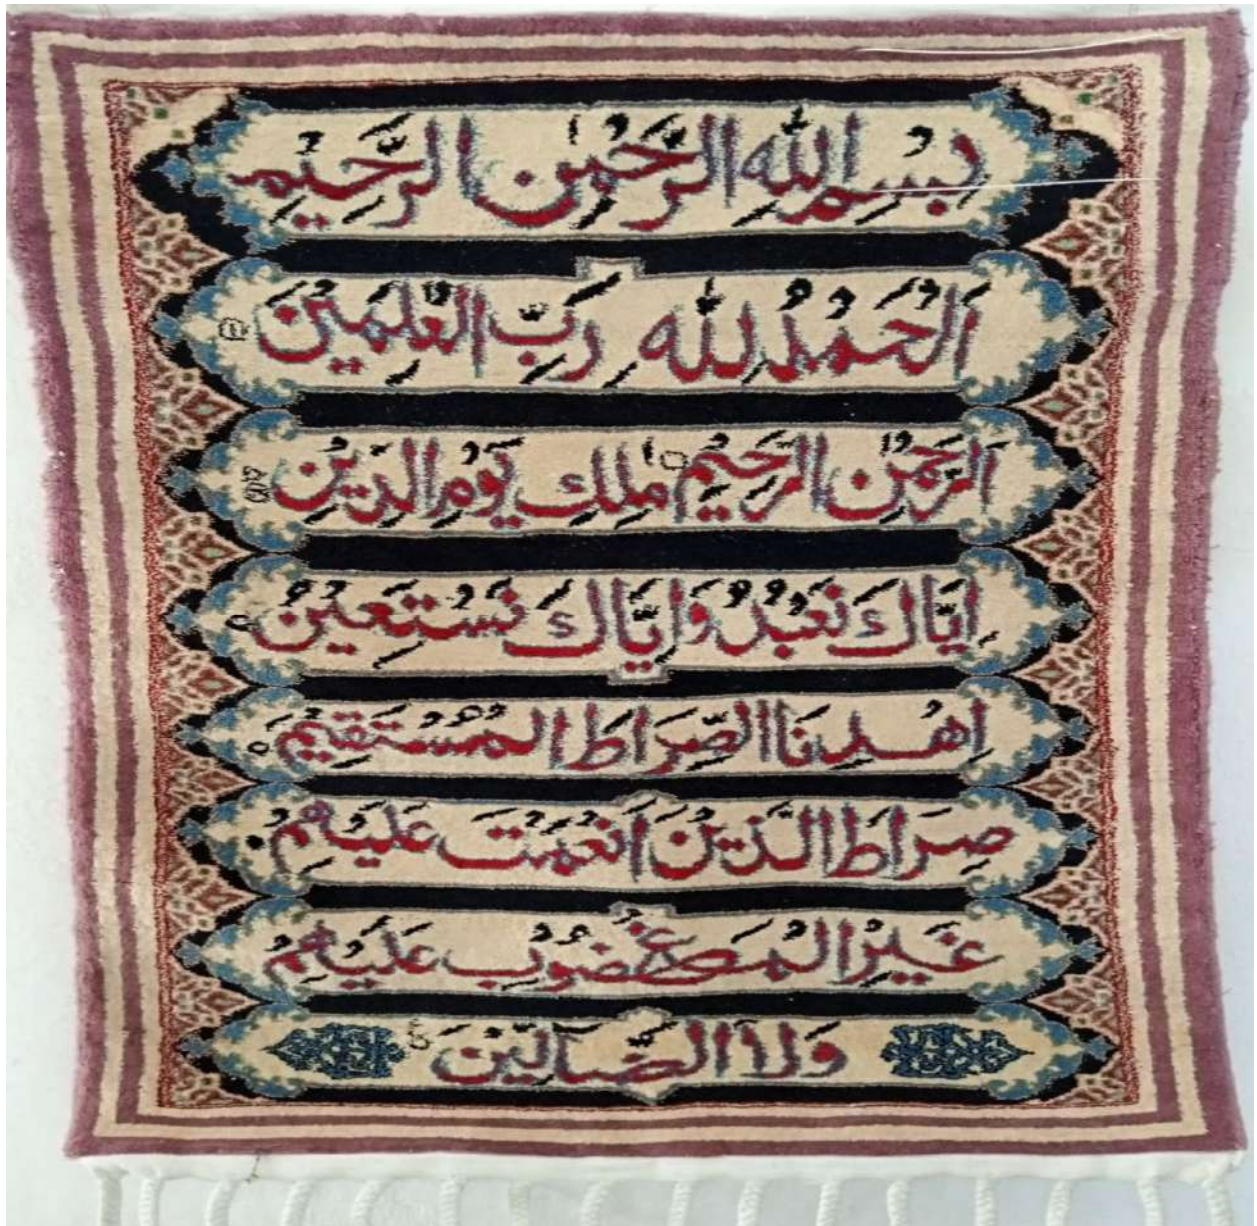 بِسْمِ اللّٰهِ الرَّحْمٰنِ الرَّحِيْمِ
اَلْحَمْدُ لِلّٰهِ رَبِّ الْعٰلَمِيْنَ
الرَّحْمٰنِ الرَّحِيْمِ مٰلِكِ يَوْمِ الدِّيْنِ
اِيَّاكَ نَعْبُدُ وَاِيَّاكَ نَسْتَعِيْنُ
اِهْدِنَا الصِّرَاطَ الْمُسْتَقِيْمَ
صِرَاطَ الَّذِيْنَ اَنْعَمْتَ عَلَيْهِمْ
غَيْرِ الْمَغْضُوْبِ عَلَيْهِمْ
وَلَا الضَّآلِّيْنَ